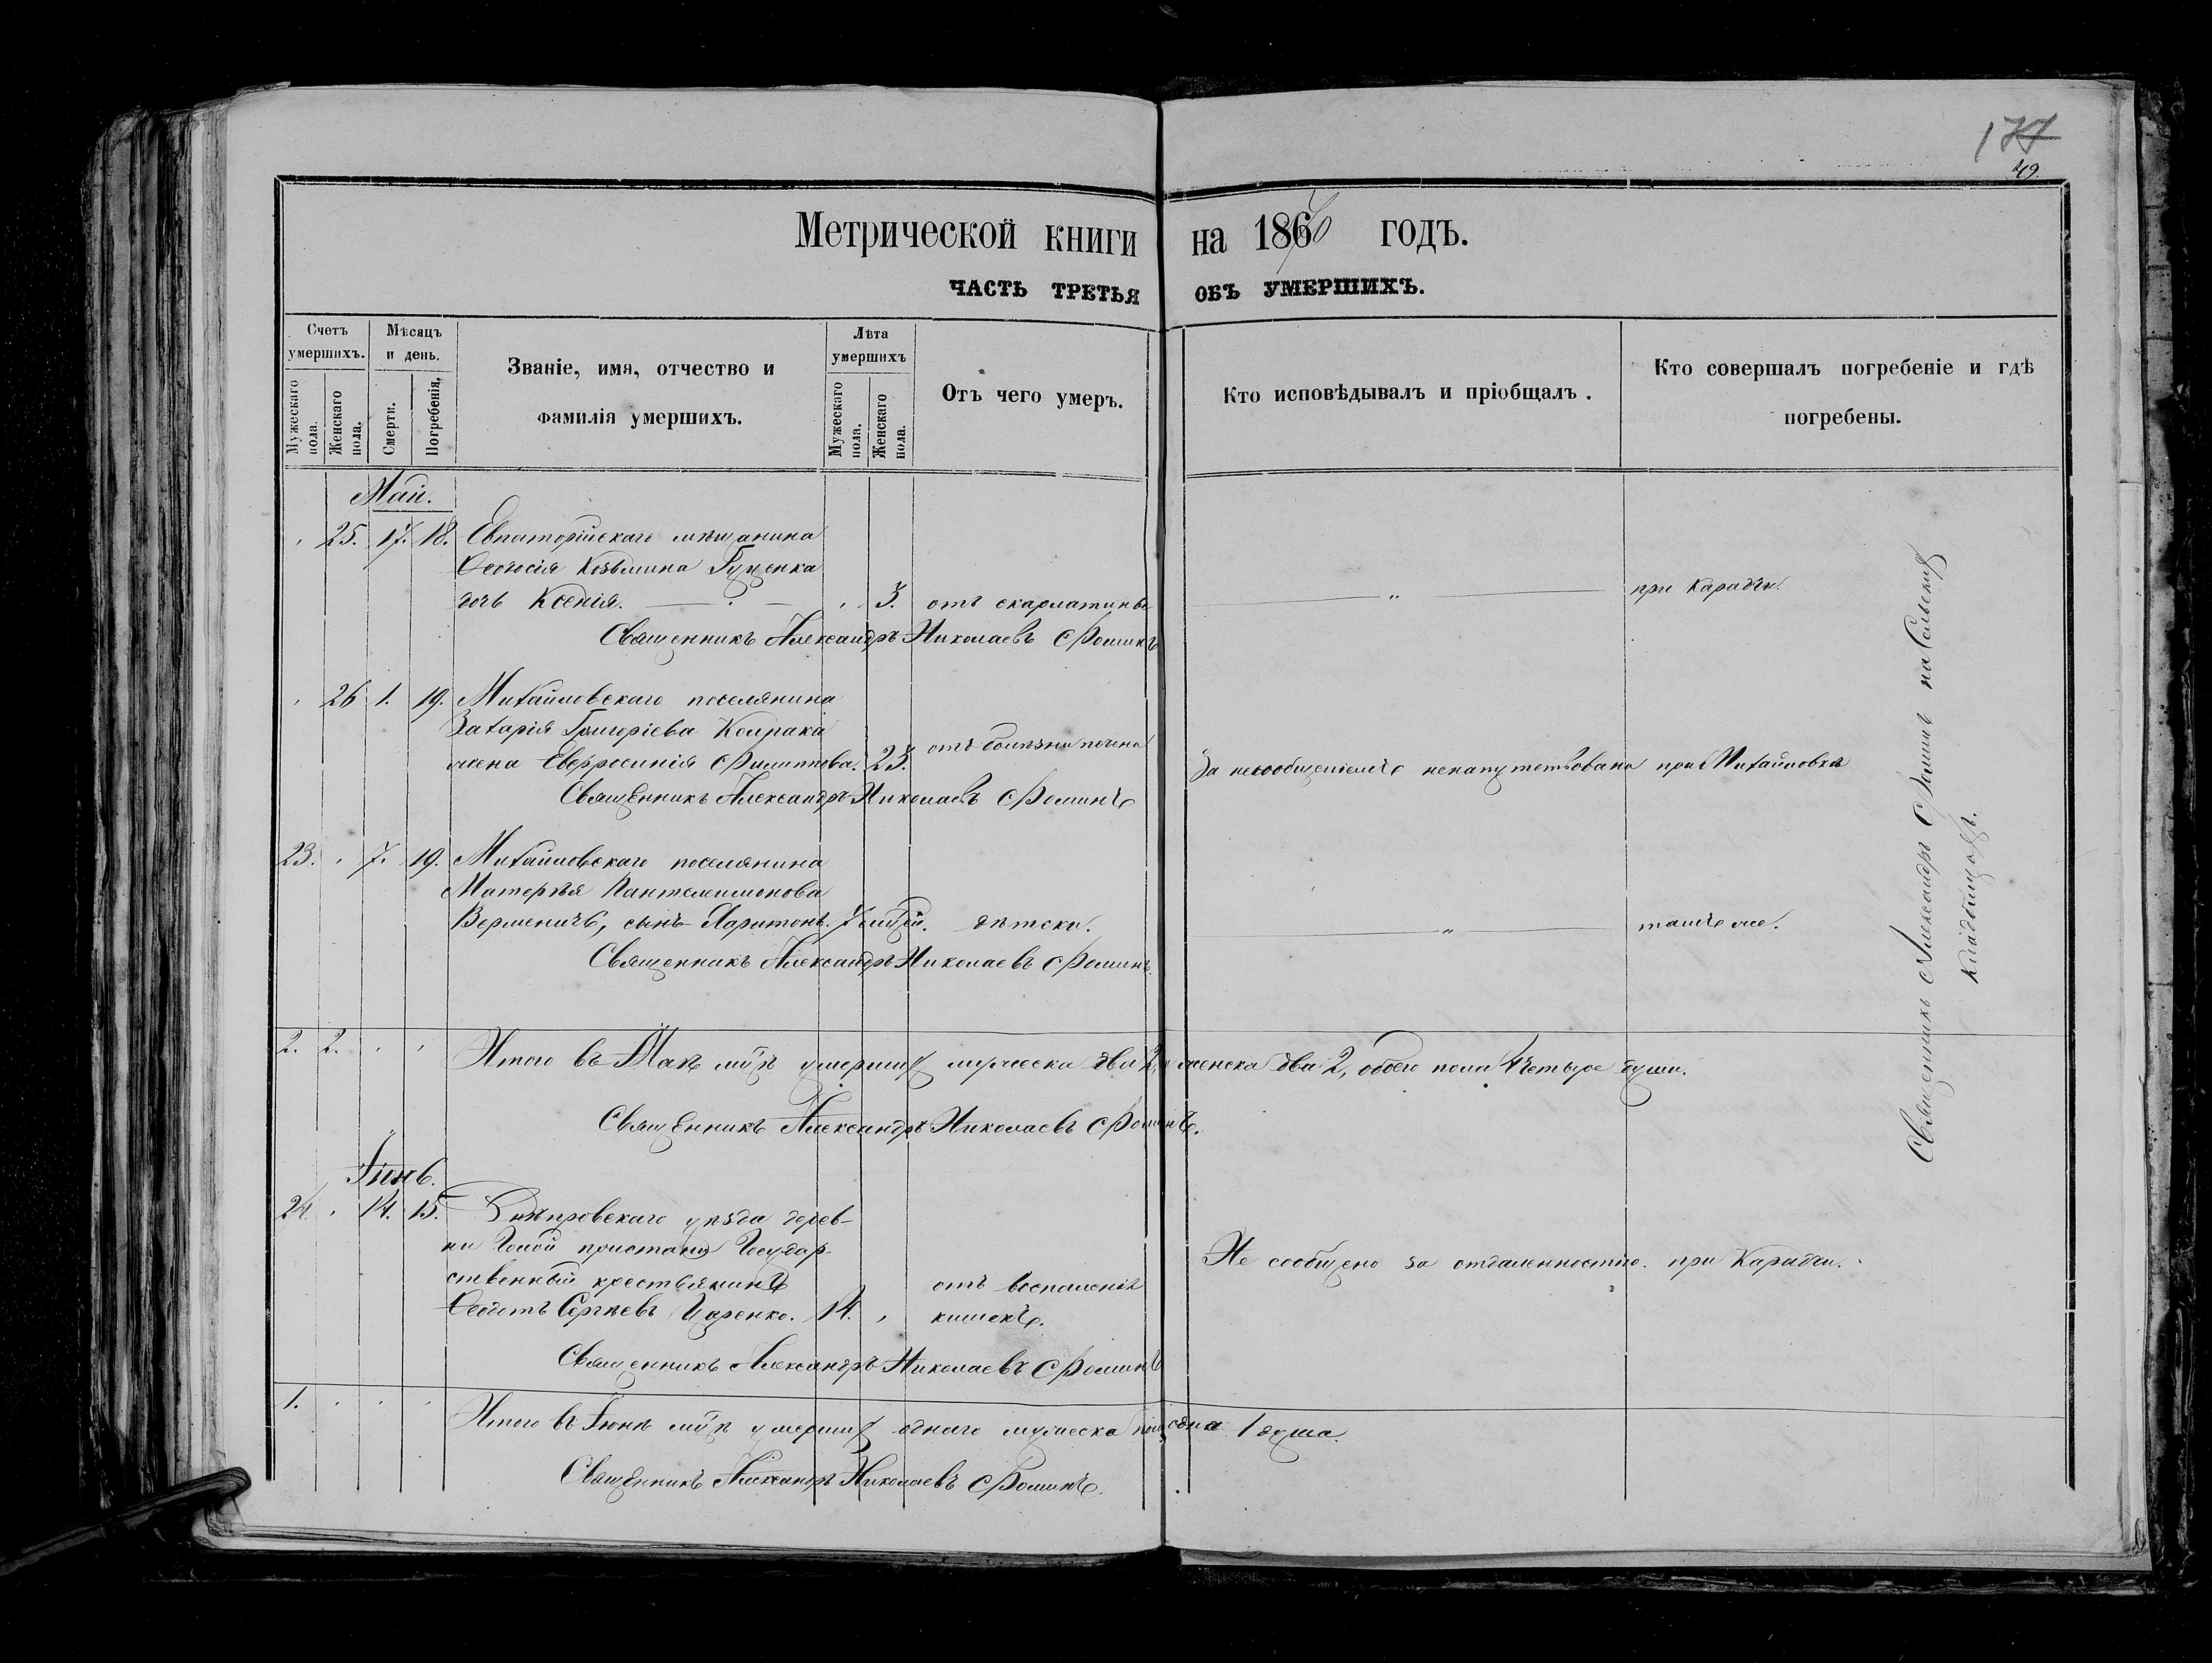 49.
Метрической книги на 1870 годъ.
ЧАСТЬ ТРЕТЬЯ ОБЪ УМЕРШИХЪ.
Счетъ умершихъ.
Мужескаго пола.
Женскаго пола.
Мѣсяцъ и день.
Смерти.
Погребенія.
Званіе, имя, отчество и
фамилія умершихъ.
Лѣта умершихъ
Мужескаго пола.
Женскаго пола.
Отъ чего умеръ.
Кто исповѣдывалъ и пріобщалъ.
Кто совершалъ погребеніе и гдѣ
погребены.
Май.
25. 17. 18. Евпаторійскаго мѣщанина
Феодосія Козьмина Гуценка
дочь Ксенія. 3. отъ скарлатины — „ — при Караджи.
Священникъ Александръ Николаевъ Фоминъ
26 1. 19. Михайловскаго поселянина
Захарія Григоріева Колпака
жена Евфросинія Филиппова. 23. отъ болѣзни печени За несообщеніемъ ненапутствована при Михайловкѣ
Священникъ Александръ Николаевъ Фоминъ
23. 7. 19. Михайловскаго поселянина
Матерѣя Пантелеимонова
Верменичъ, сынъ Харитонъ. 7 мцей. дѣтски. — „ — тамъ же.
Священникъ Александръ Николаевъ Фоминъ.
2. 2. Итого въ Маѣ мцѣ умершихъ мужеска два 2, женска два 2, обоего пола четыре души.
Священникъ Александръ Николаевъ Фоминъ.
Іюнь.
24. 14. 15. Днѣпровскаго уѣзда дерев-
ни Голой пристани Государ-
ственный крестьянинъ
Феодотъ Сергѣевъ Царенко. 14. отъ воспаленія
кишекъ. Не сообщено за отдаленностію. при Караджи.
Священникъ Александръ Николаевъ Фоминъ
1. Итого въ Іюнѣ мцѣ умершихъ одного мужеска пола одна 1 душа.
Священникъ Александръ Николаевъ Фоминъ.
Священникъ Александръ Фоминъ на Сельскихъ
кладбищахъ.